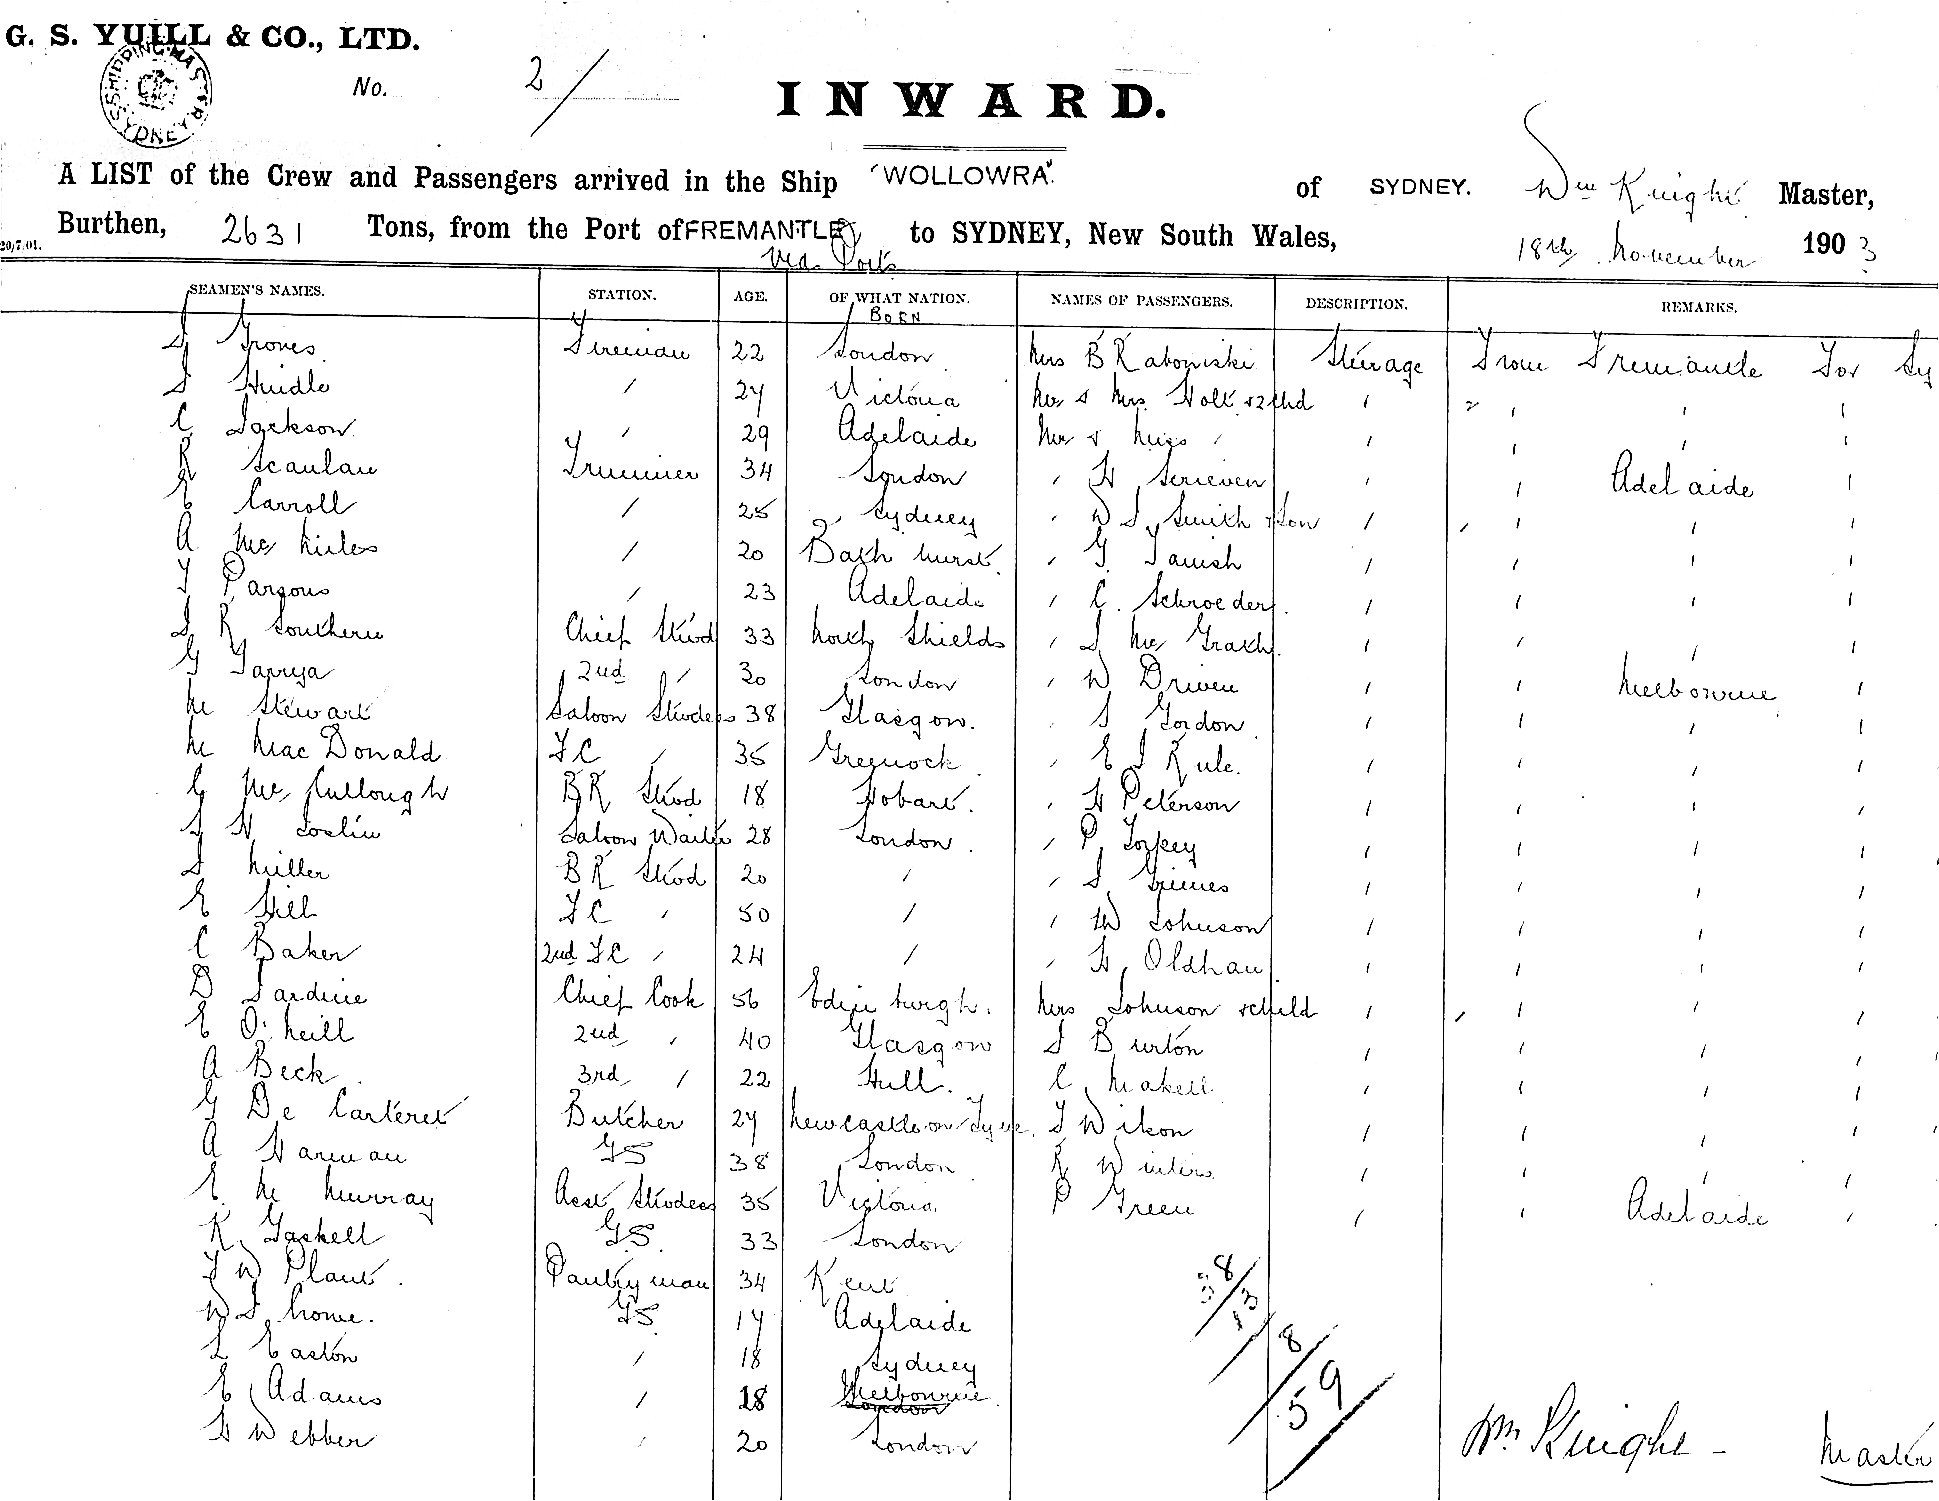 G. S. YUILL & CO., LTD.
SHIPPING MASTER SYDNEY
No. 2/
INWARD.
A LIST of the Crew and Passengers arrived in the Ship "WOLLOWRA". of SYDNEY. Wm Knight Master,
Burthen, 2631 Tons, from the Port of FREMANTLE, to SYDNEY, New South Wales, 18th November 1903
20/7.01.
Via Ports
SEAMEN'S NAMES. STATION. AGE. OF WHAT NATION. NAMES OF PASSENGERS. DESCRIPTION. REMARKS.
BORN
Groves Fireman 22 London Mrs B Steerage From Fremantle For Sy
J Hindle " 27 Victoria Mr & Mrs Holt & 2 chd " 2 " " "
C Jackson " 29 Adelaide Mr & Miss " " " " "
R Scanlan Trimmer 34 London " H Scrieven " " Adelaide "
E Carroll " 25 Sydney " W J Smith & Son " " " " "
A Mc " 20 Bathurst. " G " " " "
T Parsons " 23 Adelaide " C. Schroeder. " " " "
J R Southern Chief Stwd 33 North Shields " J Mc Grath " " " "
G 2nd " 30 London " W Driven " " Melbourne "
M Stewart Saloon Stwdess 38 Glasgow. " J Gordon " " " "
M Mac Donald FC " 35 Greenock. " E J Rule. " " " "
G Mc Cullough BR Stwd 18 Hobart. " H Peterson " " " "
J H Joslin Saloon Waiter 28 London. " P Torpey " " " "
J Miller BR Stwd 20 " " J Grimes " " " "
E Hill FC " 50 " " W Johnson " " " "
C Baker 2nd FC " 24 " " H Oldham " " " "
D Jardine Chief Cook 56 Edinburgh. Mrs Johnson & child " " " " "
E O'Neill 2nd " 40 Glasgow J Burton " " " "
A Beck. 3rd " 22 Hull. C Makell " " " "
G De Carteret Butcher 27 Newcastle on Tyne. T Wilson " " " "
A Harman GS 38 London R Winters " " " "
E M Murray Asst Stwdess 35 Victoria P Green " " Adelaide "
R Gaskell GS. 33 London
F W Plant. Pantryman 34 Kent 38/
W J GS. 17 Adelaide 13/
L Easton " 18 Sydney 8/
E Adams " 18 Melbourne London 59/
H Webber " 20 London
Wm Knight - Master